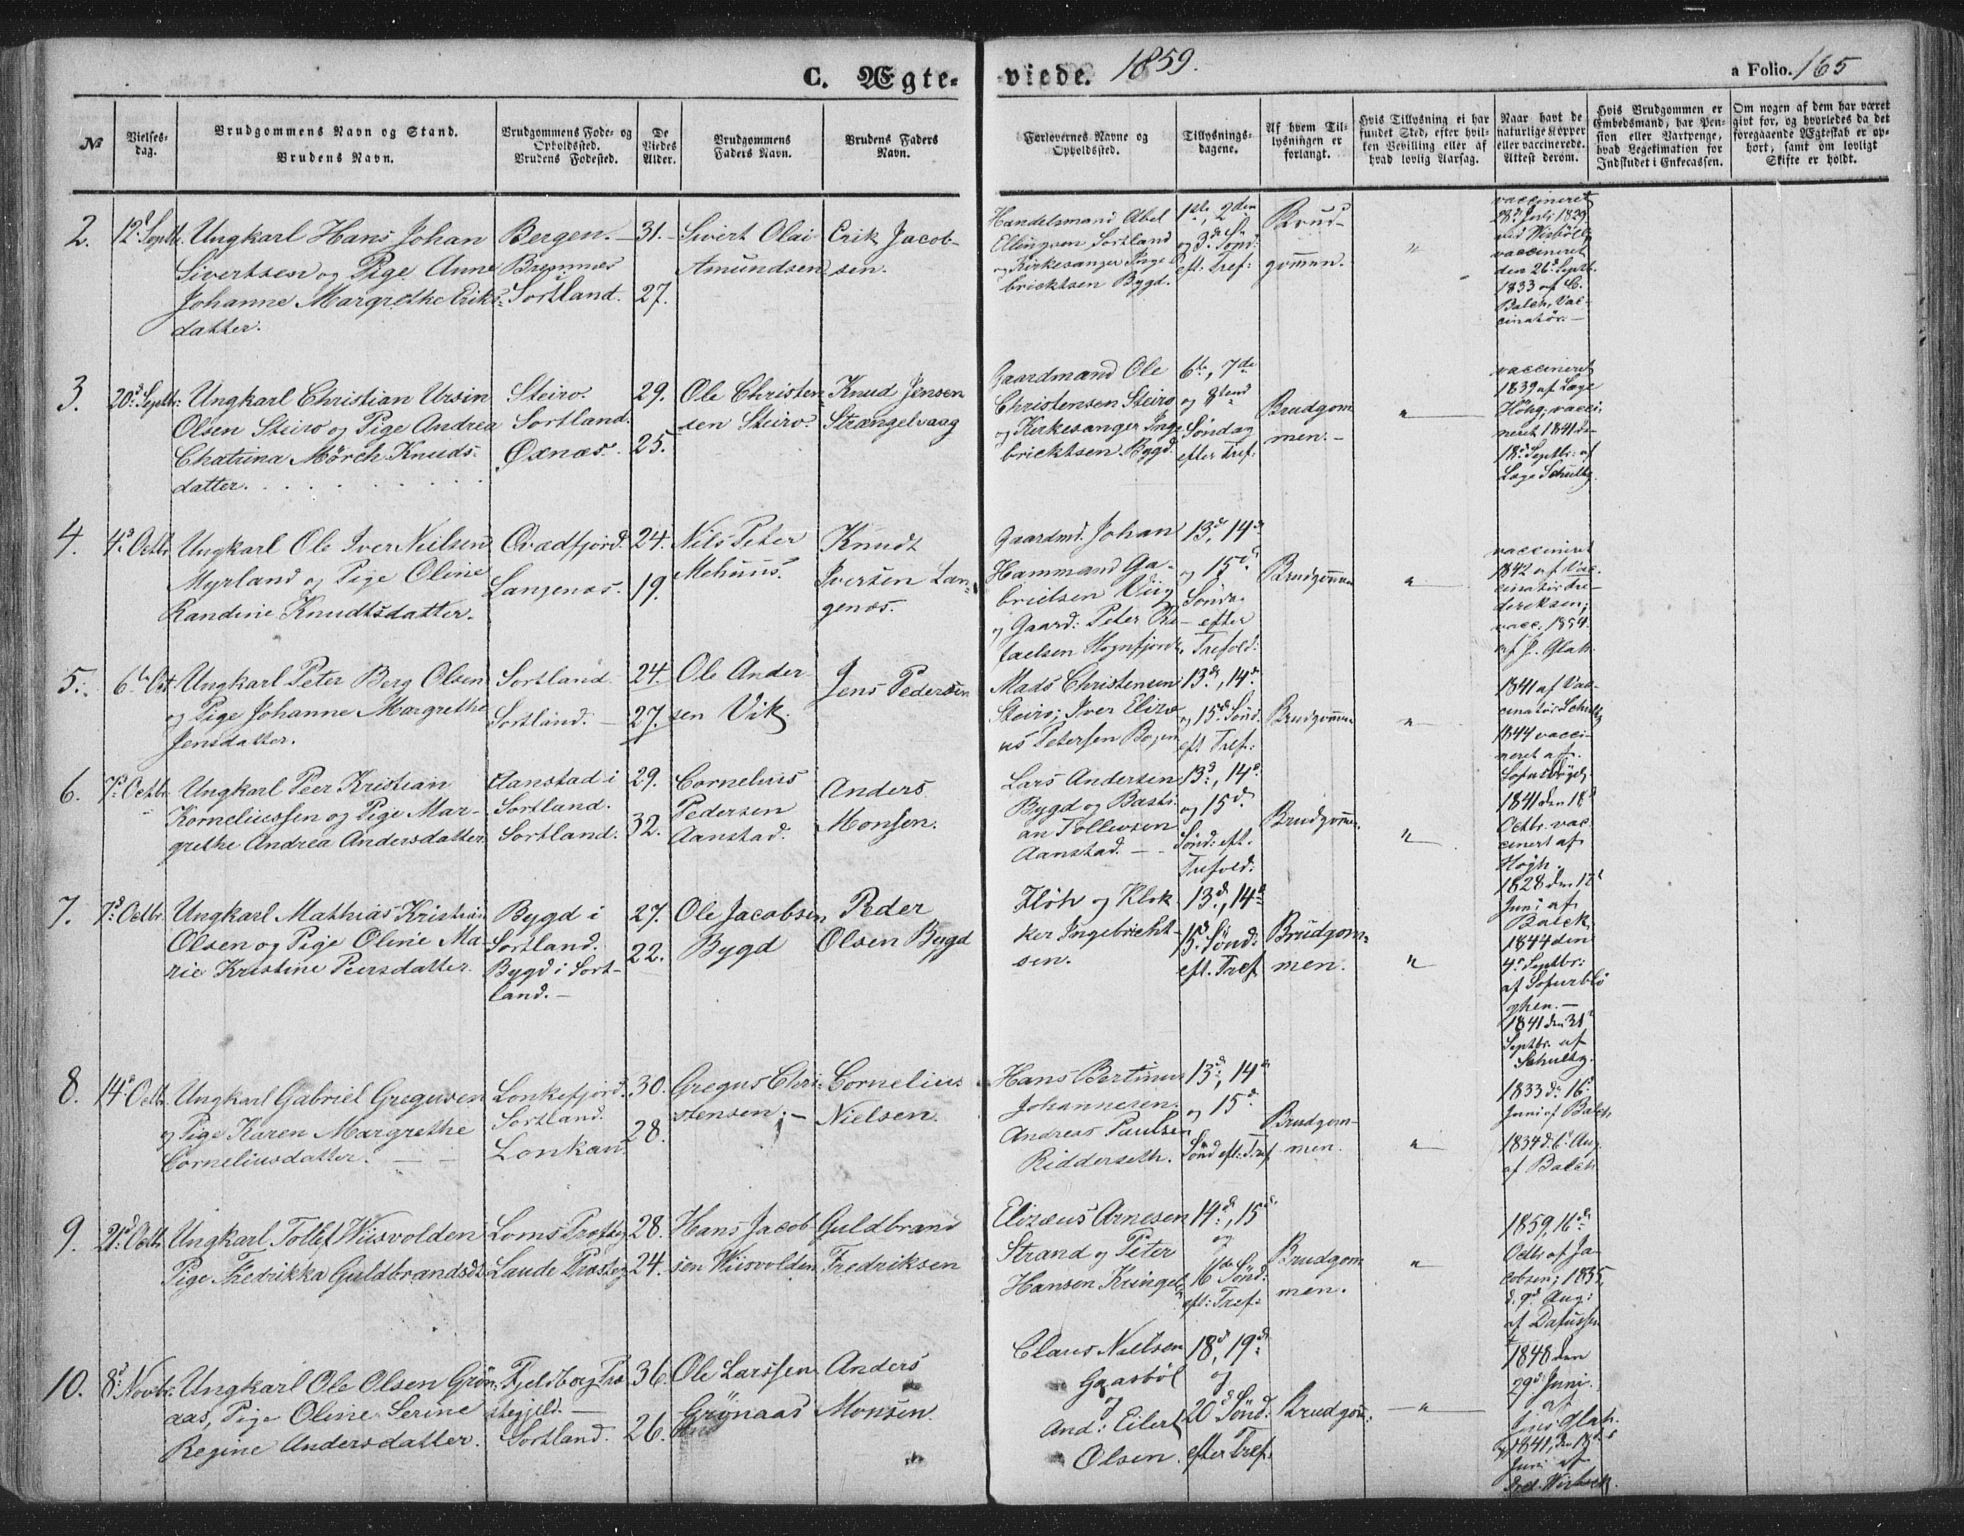 C. Ægte-viede. 1859.
a Folio. 165
No
Vielses-dag.
Brudgommens Navn og Stand.
Brudens Navn.
Brudgommens Føde- og Opholdssted.
Brudens Fødested.
De Viedes Alder.
Brudgommens Faders Navn.
Brudens Faders Navn.
Forlovernes Navne og Opholdssted.
Tillysnings-dagene.
Af hvem Tillysningen er forlangt.
Hvis Tillysning ei har fundet Sted, efter hvilken Bevilling eller af hvad lovlig Aarsag.
Naar havt de naturlige Kopper eller vaccinerede. Attest derom.
Hvis Brudgommen er Embedsmand, har Pension eller Vartpenge, hvad Legitimation for Indskudet i Enkecassen.
Om nogen af dem har været givt for, og hvorledes da det foregaaende Ægteskab er ophørt, samt om lovligt Skifte er holdt.
2. 12d Septbr.
Ungkarl Hans Johan
Sivertsen og Pige Anne
Johanne Margrethe Eriks-
datter.
Bergen.
Sortland.
31.
27.
Sivert Olai
Amundsen
Erik Jacob-
sen.
Handelsmand Abel
Ellingsen Sortland
og Kirkesanger Inge-
bricktsen Bygd.
1ste, 2den
og 3d Sønd.
eft: Tref:
Brud-
gommen.
"
vaccineret
28d Juli 1829
vaccineret
den 26d Septb.
1833 af C.
Balch, Vac-
cinatør.
3. 20d Septbr:
Ungkarl Christian Ursin
Olsen Steiro og Pige Andrea
Chatrina Mørch Knuds-
datter.
Steiro
Sortland.
Øxnæs.
29.
25.
Ole Christen
sen Steiro
Knud Jensen
Strængelvaag
Gaardmand Ole
Christensen Steiro
og Kirkesanger Inge
bricktsen Bygd.
6te, 7de
og 8tend
Søndag
efter Tref:
Brudgom
men.
"
vaccineret
1839 af Læge
Høhg, vacci
neret 1841 de
18d Septbr: af
Læge Schultz.
4. 4d Octbr.
Ungkarl Ole Iver Nielsen
Myrland og Pige Oline
Randine Knudtsdatter.
Qvædfjord.
Langenæs.
24.
19.
Nils Peter
Mehuus.
Knudt
Iversen Lan-
genæs.
Gaardmd. Johan
Hammand Ga-
brielsen Viig
og Gaard: Peter Ra-
faelsen Hognfjord.
13d, 14d
og 15d
Sønda.
efter
Trefold:
Brudgommen
"
vaccineret
1842 af Vac-
cinatør Fre-
dereksen;
vacc. 1854
af J. Glah.
5. 6te Oct
Ungkarl Peter Berg Olsen
og Pige Johanne Margrethe
Jensdatter.
Sortland.
Sortland.
24.
27.
Ole Ander
sen Vik.
Jens Pedersen
Mads Christensen
Steiro; Iver Elizæ
us Petersen Bogen
13d, 14d
og 15d Sønd.
eft Tref:
Brudgommen
"
1841 af Vac-
cinatør Schultz
1844 vacci-
neret af
6. 7d Octbr.
Ungkarl Peer Kristian
Korneliussen og Pige Mar-
grethe Andrea Andersdatter.
Aanstad i
Sortland.
Sortland.
29.
32.
Cornelius
Pedersen
Aanstad.
Anders
Monsen.
Lars Andersen
Bygd og Basti-
an Tollevsen
Aanstad.
13d, 14d
og 15d
Sønd: eft.
Trefold:
Brudgommen
"
1841 den 18d
Octbr. vac-
cinert af
Høgh.
1828 den 12d
Juni af
Balck
7. 7d Octbr.
Ungkarl Mathias Kristian
Olsen og Pige Oline Ma-
rie Kristine Peersdatter.
Bygd i
Sortland.
Bygd i Sort-
land.
27.
22.
Ole Jacobsen
Bygd
Peder
Olsen Bygd
Fløh og Klok
ker Ingebricht-
sen.
13d, 14d
15d Sønd:
eft. Tref
Brudgom-
men.
"
1844 den
4d Septbr:
1841 den 31d
Septbr. af
Schultz.
8. 14d Octbr.
Ungkarl Gabriel Gregusen
og Pige Karen Margrethe
Corneliusdatter.
Lonkefjord.
Sortland.
Lonkan
30.
28.
Gregus Chri-
stensen;
Cornelius
Nielsen.
Hans Bertinus
Johannesen.
Andreas Paulsen
Ridderseth.
13d, 14d
og 15d
Sønd eft: Tref
Brudgom-
men.
"
1833 d: 16d
Juni af Balch
1834 d. 6d Aug.
af Balch
9. 21d Octbr
Ungkarl Tollef Wiisvolden
Pige Fredrikka Guldbrandsdt
Loms Præsteg
Laude Præsteg
28.
24.
Hans Jacob
sen Wiisvolden
Guldbrand
Fredriksen
Elizæus Arnesen
Strand og Peter
Hansen Kringel
14d, 15d
og
16de Sønd:
eft: Tref:
Brudgom
men.
"
1859, 16d
Octbr af Ja-
cobsen; 1835,
d. 9d Aug:
10. 8d Novbr.
Ungkarl Ole Olsen Grøn-
aas, Pige Oline Serine
Regine Andersdatter.
Fjeldberg Præ
stegjeld.
Sortland.
36.
26.
Ole Larssen
Grønaas
Anders
Monsen.
Claus Nielsen
Gaasbøl
og
And: Eilert
Olsen.
18d, 19d
og
20d Sønd:
efter Tref.
Brudgom:
"
1848 den
29d Juni
af
Jens Glah.
1841, den 18d
Juni af